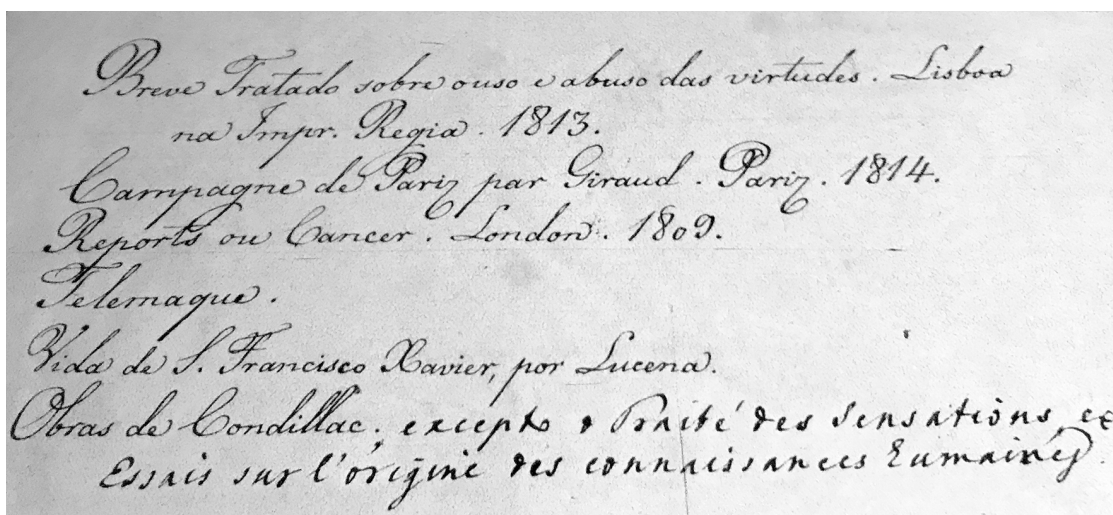 Breve Tratado sobre o uso e abuso das virtudes. Lisboa
na Impr. Regia. 1813.
Campagne de Pariz par Giraud. Pariz. 1814.
Reports ou Cancer. London. 1809.
Telemaque.
Vida de S. Francisco Xavier, por Lucena.
Obras de Condillac; excepto o Traité des Sensations, et
Essais sur l'origine des connaissances humaines.